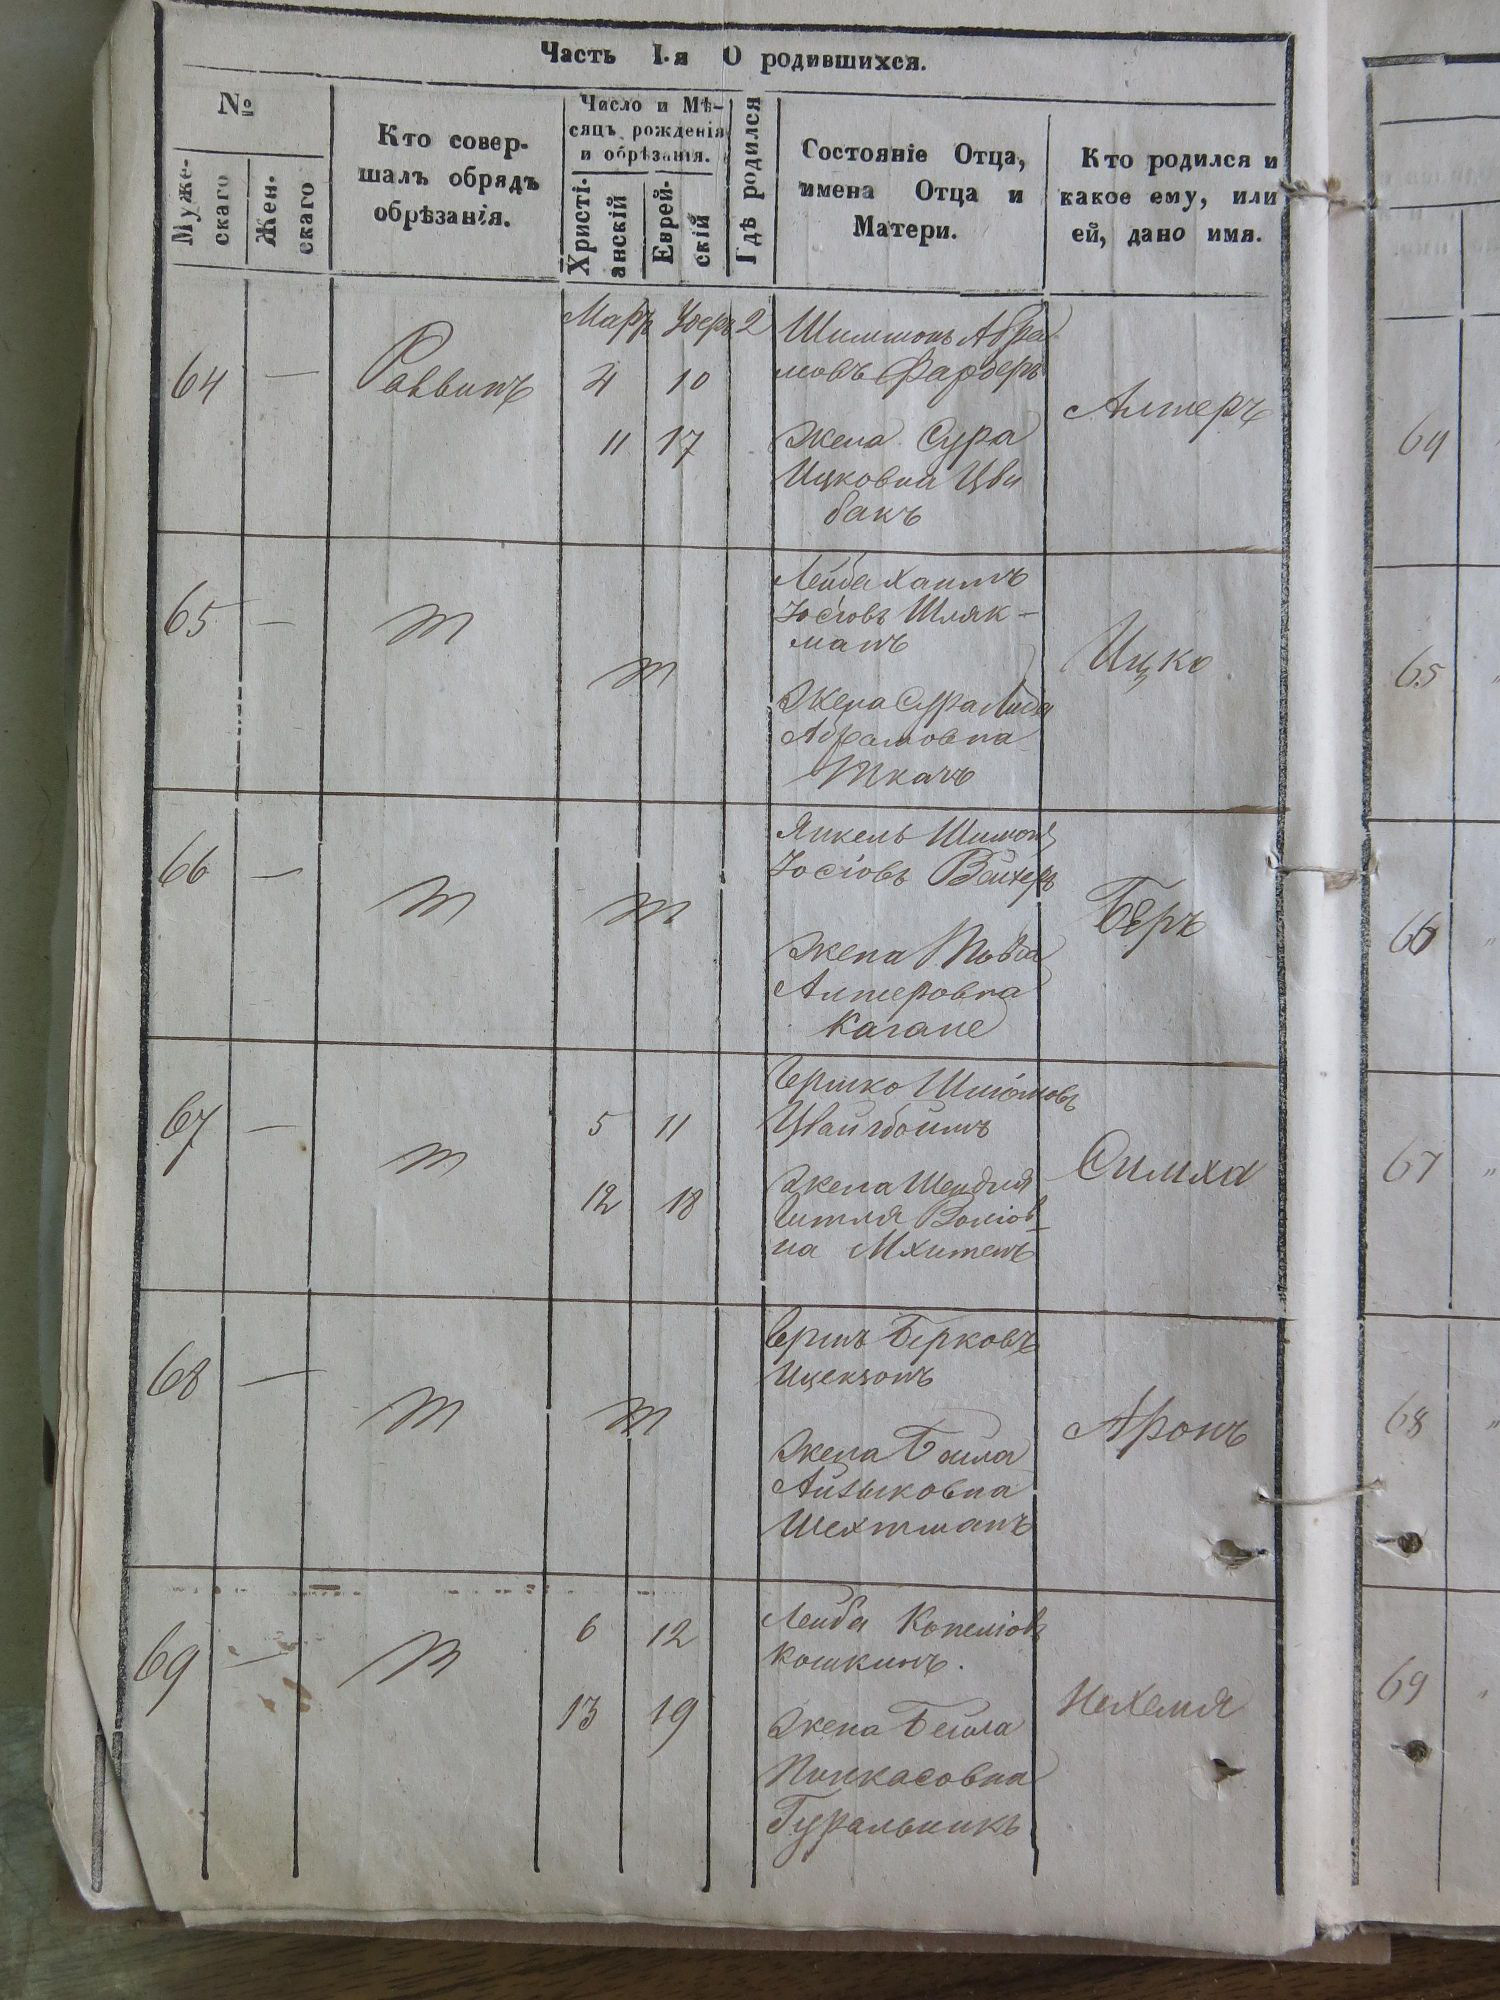 Часть I-я О родившихся.
№
Муже-
скаго
Жен-
скаго
Кто совер-
шалъ обрядъ
обрѣзанія.
Число и Мѣ-
сяцъ рожденія
и обрѣзанія.
Христі-
анскій
Еврей-
скій
Гдѣ родился
Состояніе Отца,
имена Отца и
Матери.
Кто родился и
какое ему, или
ей, дано имя.
64 —
Раввинъ
Мартъ 2
4 10
11 17
Шимшонъ Абра
мовъ Фарберъ
жена Сура
Ицковна Цви
бакъ
Алтеръ
65 —
Лейба Хаимъ
Іосіовъ Шляк-
манъ
жена Сура
Абрамовна
Ткачъ
Ицко
66 —
Янкель Шимонъ
Іосіовъ
жена
Алтеровна
Кагане
Беръ
67 —
5 11
12 18
Гершко
Цвайгбоймъ
жена Шендля
Гитля Волков
на
Симха
68 —
Гершъ Берковъ
Ицексонъ
жена Бейла
Айзыковна
Шехтманъ
Аронъ
69 —
6 12
13 19
Лейба
Кошкинъ.
жена Бейла
Пинкасовна
Гуральникъ
Нехемия
64
65
66
67
68
69